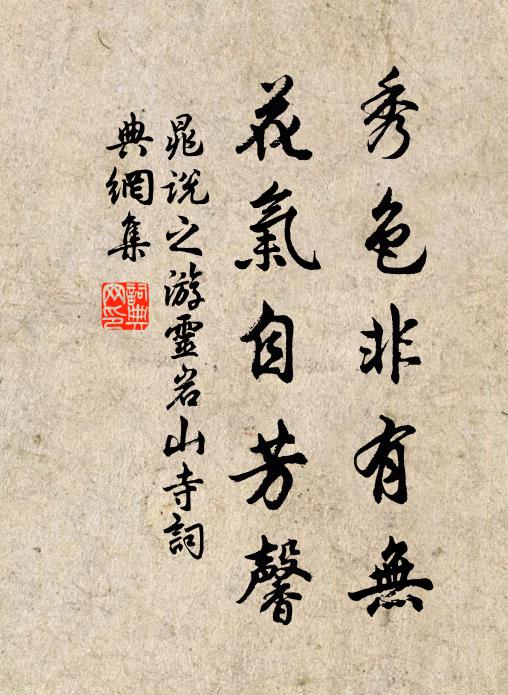 秀色非有無
花氣自芳馨
晁說之游靈岩山寺詞
典網集
詞典網印